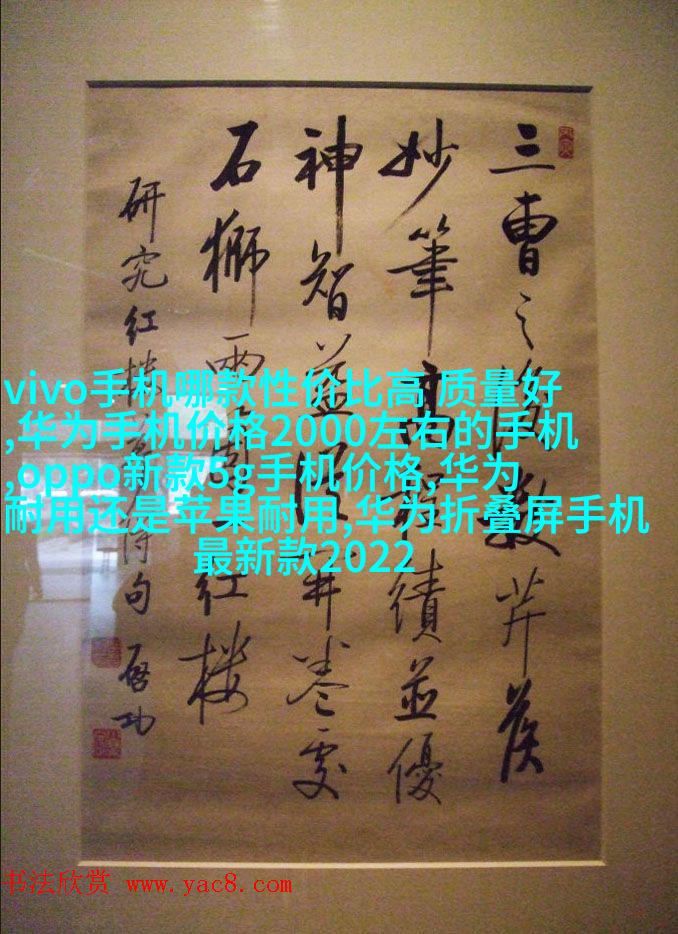 三曹之後數芹侯
妙筆高程績並優
神智益從開卷處
石獅兩紅樓
研究紅樓夢得句 啓功
vivo手机哪款性价比高 质量好
,华为手机价格2000左右的手机
,oppo新款5g手机价格,华为
耐用还是苹果耐用,华为折叠屏手机
最新款2022
书法欣赏 www.yac8.com